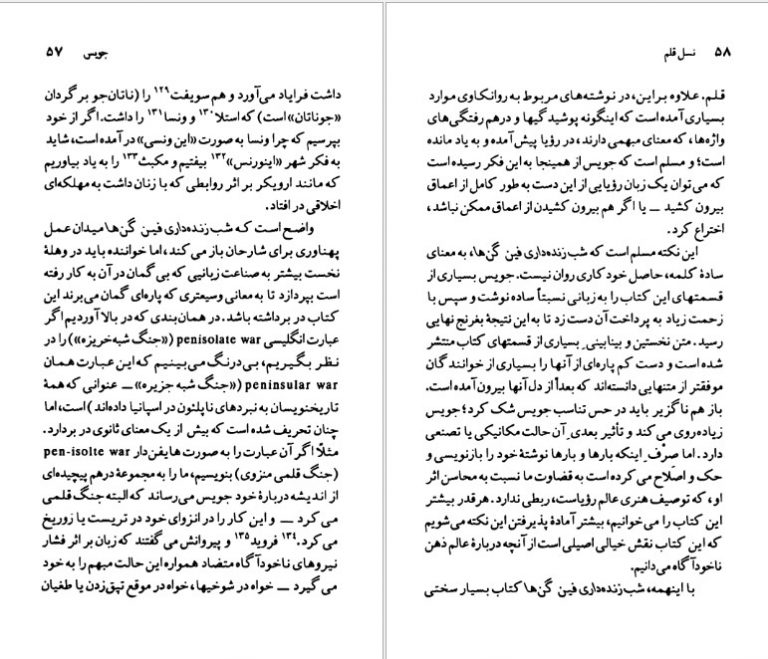 جویس ۵۷
داشت فرایاد می‌آورد و هم سویفت۱۲۹ را (ناتان‌جو برگردان
«جوناتان» است) که استلا۱۳۰ و ونسا۱۳۱ را داشت. اگر از خود
بپرسیم که چرا ونسا به صورت «این ونسی» در آمده است، شاید
به فکر شهر «اینورنس»۱۳۲ بیفتیم و مکبث۱۳۳ را به یاد بیاوریم
که مانند ارویکر بر اثر روابطی که با زنان داشت به مهلکه‌ای
اخلاقی در افتاد.
واضح است که شب‌زنده‌داری فین‌گن‌ها میدان عمل
پهناوری برای شارحان باز می‌کند، اما خواننده باید در وهلهٔ
نخست بیشتر به صناعت زبانیی که بی‌گمان در آن به کار رفته
است بپردازد تا به معانی وسیعتری که پاره‌ای گمان می‌برند این
کتاب در برداشته باشد. در همان‌بندی که در بالا آوردیم اگر
عبارت انگلیسی penisolate war («جنگ شبه‌خریزه») را در
نظر بگیریم، بی‌درنگ می‌بینیم که این عبارت همان
peninsular war («جنگ شبه جزیره» ــ عنوانی که همهٔ
تاریخنویسان به نبردهای ناپلئون در اسپانیا داده‌اند) است، اما
چنان تحریف شده است که بیش از یک معنای ثانوی در بردارد.
مثلاً اگر آن عبارت را به صورت هایفن‌دار pen-isolte war
(جنگ قلمی منزوی) بنویسیم، ما را به مجموعهٔ درهم پیچیده‌ای
از اندیشه دربارهٔ خود جویس می‌رساند که البته جنگ قلمی
می‌کرد ــ و این کار را در انزوای خود در تریست یا زوریخ
می‌کرد.۱۳۴ فروید۱۳۵ و پیروانش می‌گفتند که زبان بر اثر فشار
نیروهای ناخودآگاه متضاد همواره این حالت مبهم را به خود
می‌گیرد ــ خواه در شوخیها، خواه در موقع تپق‌زدن یا طغیان
۵۸ نسل قلم
قلم. علاوه براین، در نوشته‌های مربوط به روانکاوی موارد
بسیاری آمده است که اینگونه پوشیدگیها و درهم رفتگی‌های
واژه‌ها، که معنای مبهمی دارند، در رؤیا پیش آمده و به یاد مانده
است؛ و مسلم است که جویس از همینجا به این فکر رسیده است
که می‌توان یک زبان رؤیایی از این دست به طور کامل از اعماق
بیرون کشید ــ یا اگر هم بیرون کشیدن از اعماق ممکن نباشد،
اختراع کرد.
این نکته مسلم است که شب‌زنده‌داری فین‌گن‌ها، به معنای
سادهٔ کلمه، حاصل خود کاری روان نیست. جویس بسیاری از
قسمتهای این کتاب را به زبانی نسبتاً ساده نوشت و سپس با
زحمت زیاد به پرداخت آن دست زد تا به این نتیجهٔ بغرنج نهایی
رسید. متن نخستین و بینابینی بسیاری از قسمتهای کتاب منتشر
شده است و دست کم پاره‌ای از آنها را بسیاری از خوانندگان
موفقتر از متنهایی دانسته‌اند که بعداً از دل آنها بیرون آمده است.
باز هم ناگزیر باید در حس تناسب جویس شک کرد؛ جویس
زیاده‌روی می‌کند و تأثیر بعدی آن حالت مکانیکی یا تصنعی
دارد. اما صرْفِ اینکه بارها و بارها نوشتهٔ خود را بازنویسی و
حک و اصلاح می‌کرده است به قضاوت ما نسبت به محاسن اثر
او، که توصیف هنری عالم رؤیاست، ربطی ندارد. هرقدر بیشتر
این کتاب را می‌خوانیم، بیشتر آمادهٔ پذیرفتن این نکته می‌شویم
که این کتاب نقش خیالی اصیلی است از آنچه دربارهٔ عالم ذهن
ناخودآگاه می‌دانیم.
با اینهمه، شب‌زنده‌داری فین‌گن‌ها کتاب بسیار سختی